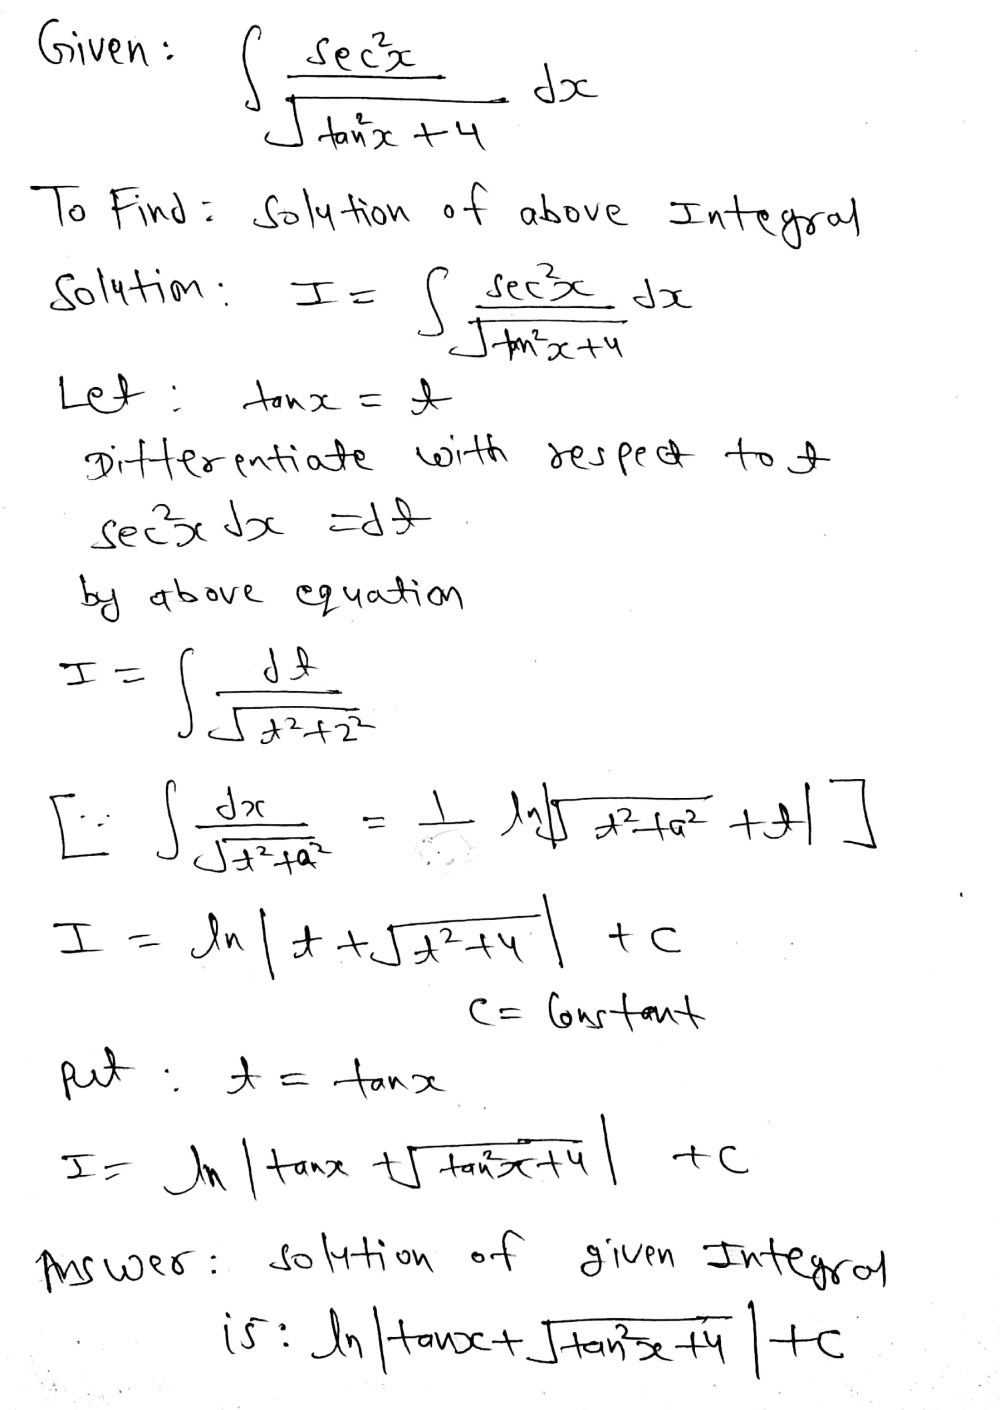 Given: ∫ sec²x / √(tan²x + 4) dx
To Find: Solution of above Integral
Solution: I = ∫ sec²x / √(tan²x+4) dx
Let: tanx = t
Differentiate with respect to t
sec²x dx = dt
by above equation
I = ∫ dt / √(t²+2²)
[∵ ∫ dx / √(t²+a²) = 1 ln|√(t²+a²) + t|]
I = ln|t + √(t²+4)| + C
C = Constant
put: t = tanx
I = ln|tanx + √(tan²x+4)| + C
Answer: solution of given Integral
is: ln|tanx + √(tan²x+4)| + C